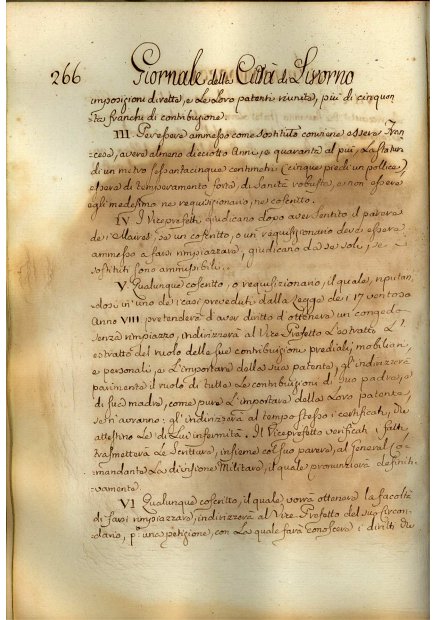 266 Giornale della Città di Livorno
imposizioni dirette, e le loro patenti riunite, più di cinquan
ta franchi di contribuzione.
III. Per essere ammesso come sostituto conviene essere Fran
cese, avere almeno dieciotto Anni, e quaranta al più, la statura
di un metro sessantacinque centimetri (cinque piedi un pollice)
essere di temperamento forte, di sanità robusta, e non essere
egli medesimo ne requisizionario, ne coscritto.
IV. I Viceprefetti giudicano dopo aver sentito il parere
dei Maires, se un coscritto, o un requisizionario deve essere
ammesso a farsi rimpiazzare, giudicano da se soli, se i
sostituti sono ammissibili.
V. Qualunque coscritto, o requisizionario, il quale, reputan
dosi in uno dei casi preveduti dalla Legge dei 17 ventoso
Anno VIII pretenderà d'aver diritto d'ottenere un congedo
senza rimpiazzo, indirizzerà al Vice Prefetto l'estratto L'
estratto del ruolo delle sue contribuzioni prediali, mobiliari
e personali, e l'importare della sua patente, gl'indirizzerà
parimente il ruolo di tutte le contribuzioni di suo padre, e
di sua madre, come pure l'importare della loro patente,
se n'avranno: gl'indirizzerà al tempo stesso i certificati, che
attestino le di lui infermità. Il Viceprefetto verificati i fatti,
trasmetterà le scritture, insieme col suo parere, al General Co
mandante la divisione Militare, il quale pronunzierà definiti
vamente
VI. Qualunque coscritto, il quale vorrà ottenere la facoltà
di farsi rimpiazzare, indirizzerà al Vice Prefetto del suo circon
dario, p. una petizione, con la quale farà conoscere i diritti che